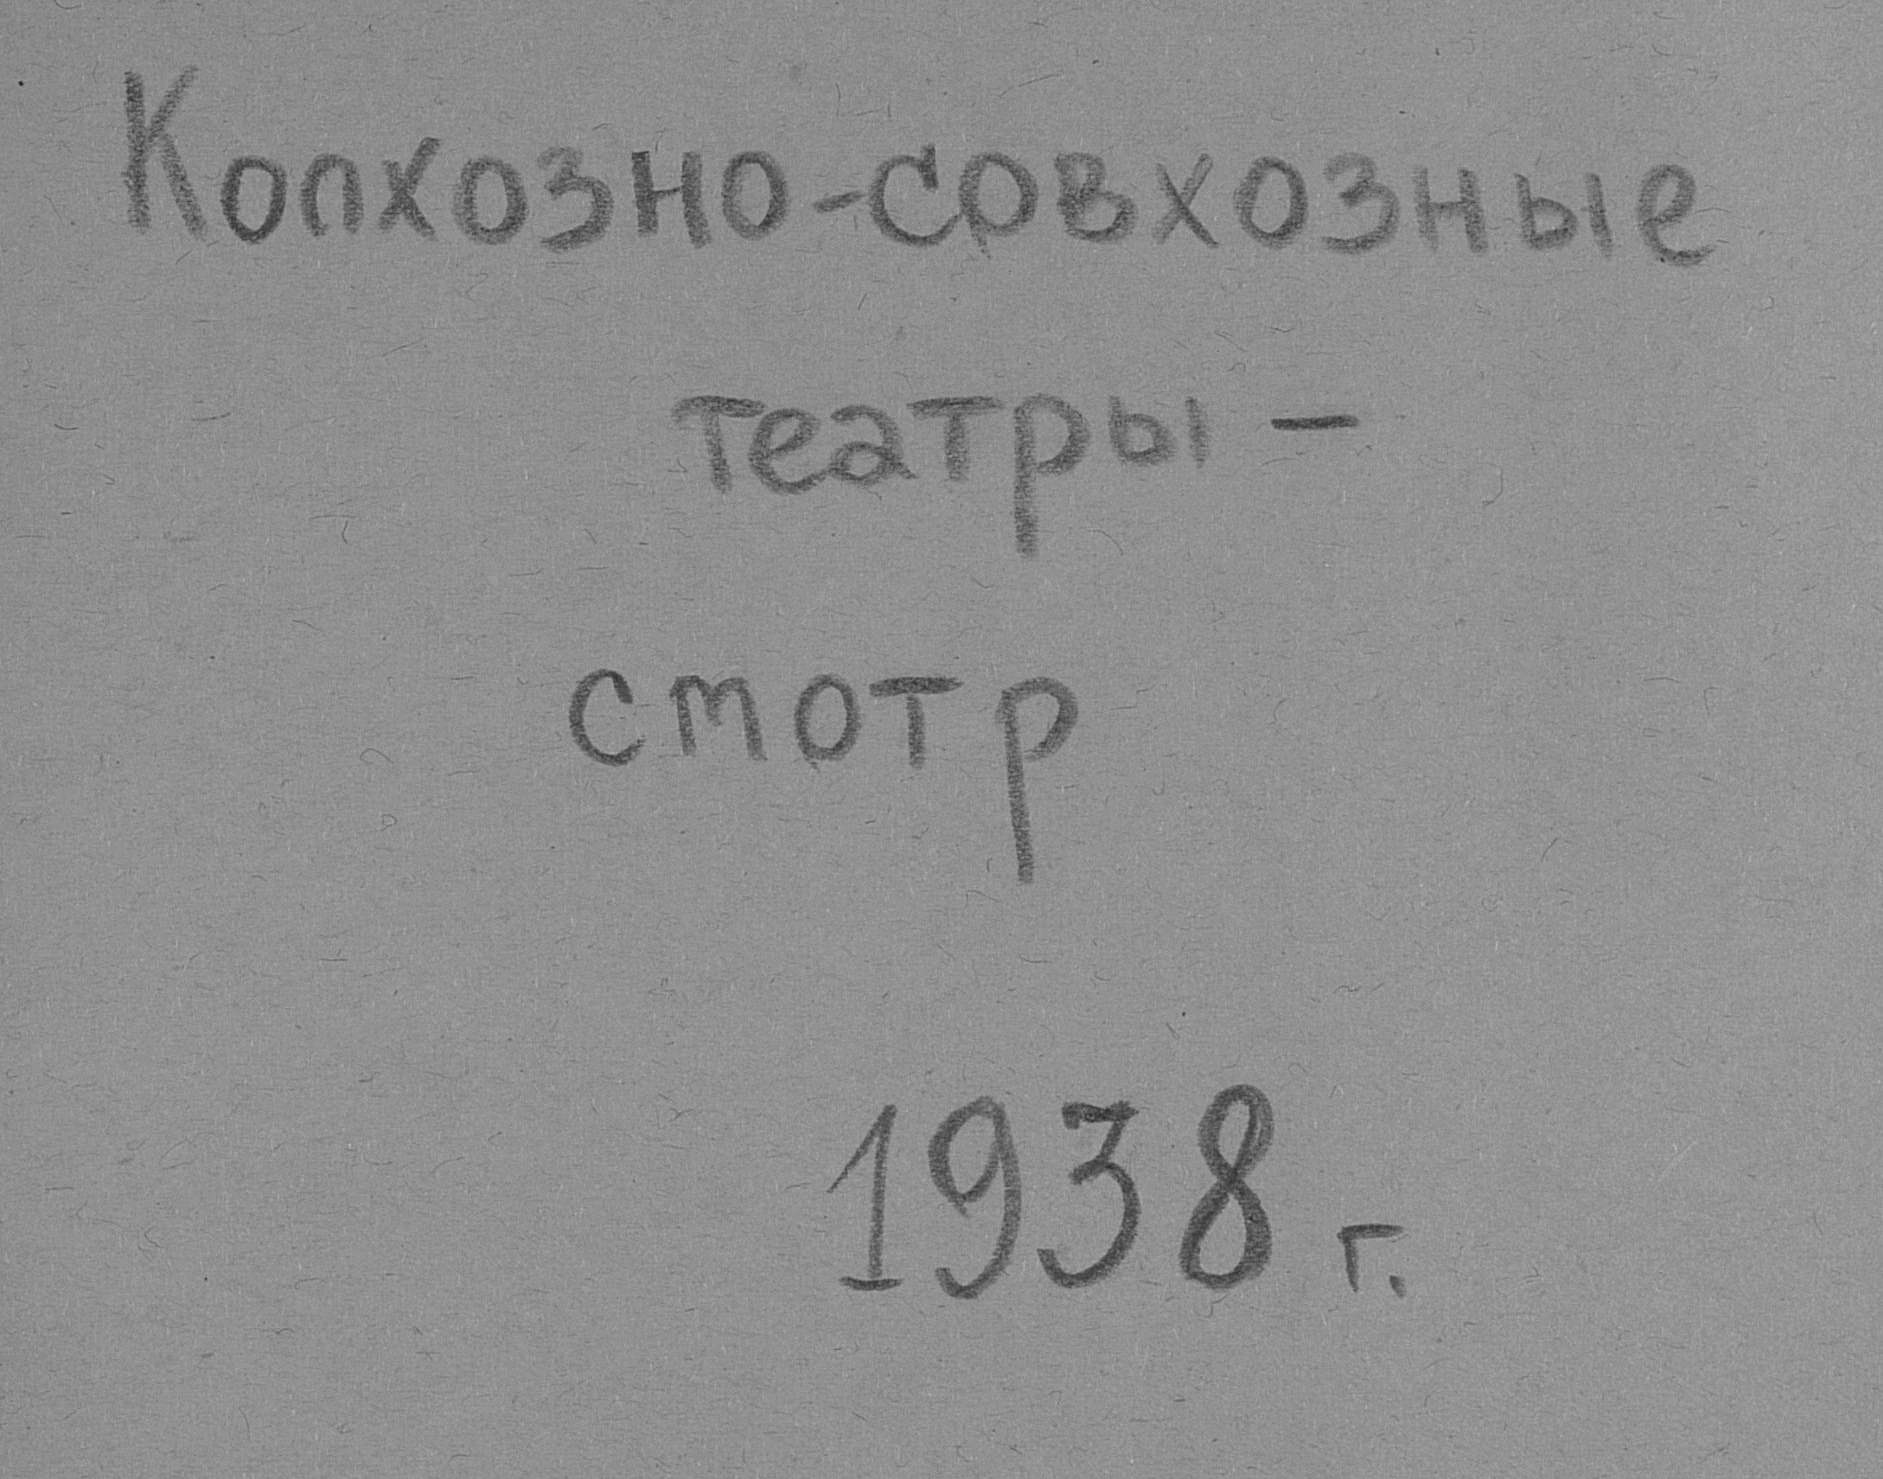 Колхозно-совхозные
театры -
смотр
1938 г.